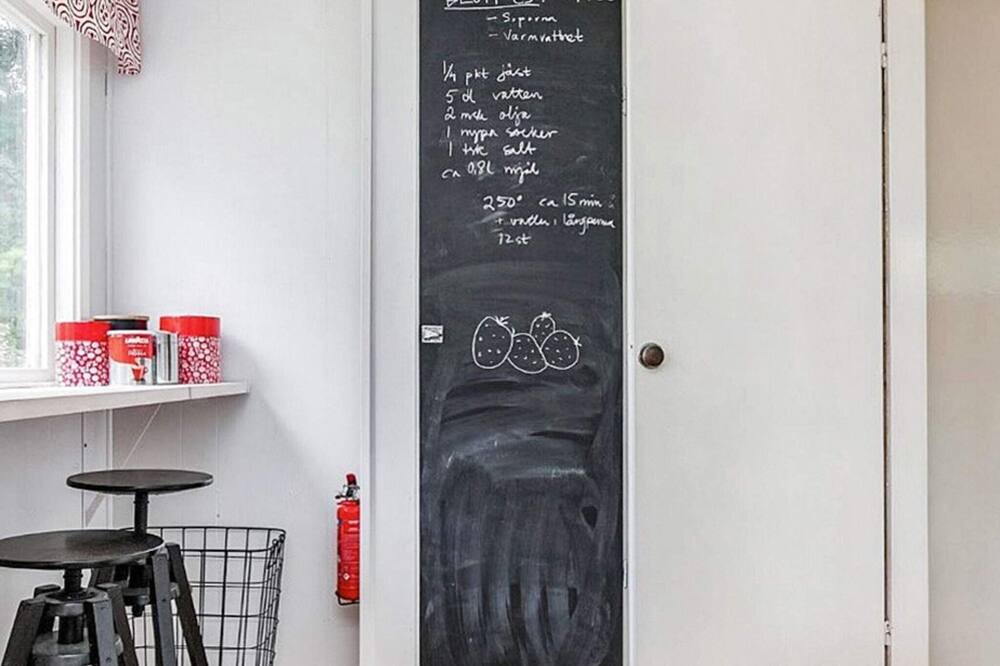 - Soporna
- Varmvattnet
1/4 pkt jäst
5 dl vatten
2 msk olja
1 nypa socker
1 tsk salt
ca 0,8 l mjöl
250° ca 15 min
+ vatten i långpanna
12 st
LAVAZZA